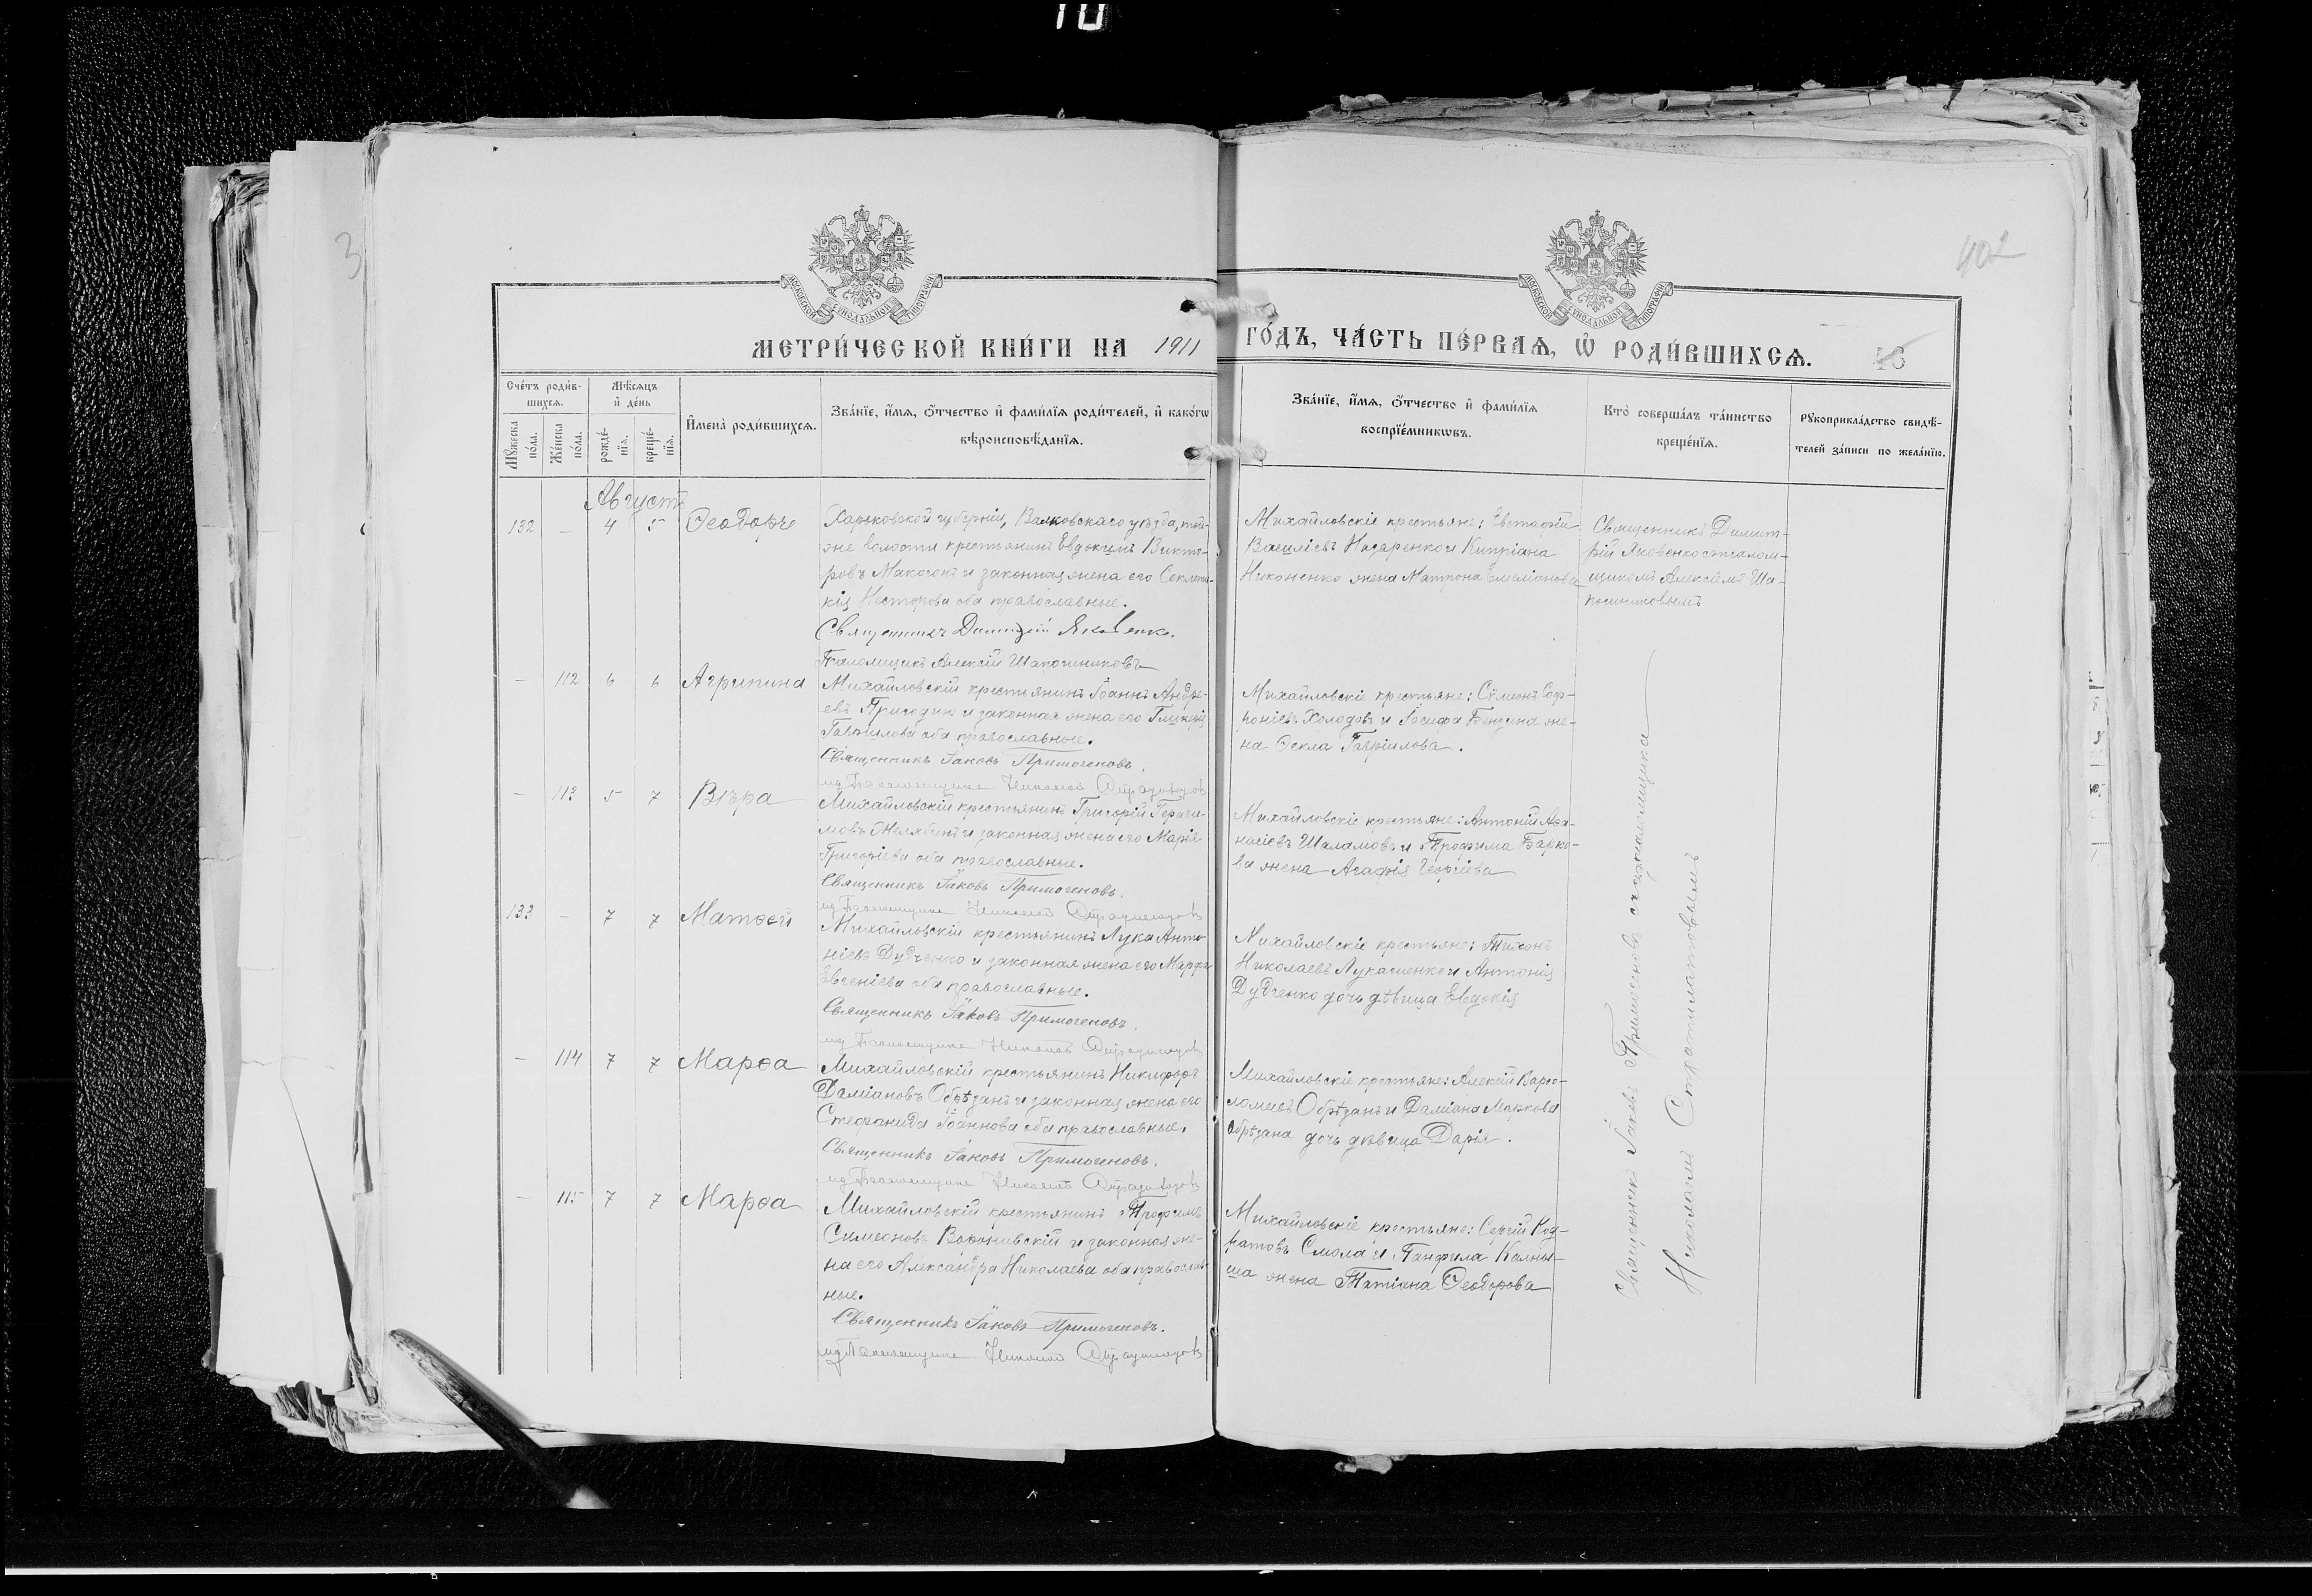 10
3
402
МОСКОВСКОЙ СѴНОДАЛЬНОЙ ТИПОГРАФІИ
МОСКОВСКОЙ СѴНОДАЛЬНОЙ ТИПОГРАФІИ
МЕТРИ́ЧЕСКОЙ КНИ́ГИ НА 1911 ГО́ДЪ, ЧА́СТЬ ПЕ́РВАѦ, Ѡ҆ РОДИ́ВШИХСѦ.
Сче́тъ роди́в-
шихсѧ.
Мꙋ́жеска
по́ла.
Же́нска
по́ла.
Мѣ́сѧцъ
и҆ де́нь
рожде́-
нїѧ.
креще́-
нїѧ.
И҆мена̀ роди́вшихсѧ.
Зва́нїе, и҆́мѧ, ѻ҆́тчество и҆ фами́лїѧ роди́телей, и҆ како́гѡ
вѣроисповѣ́данїѧ.
Зва́нїе, и҆́мѧ, ѻ҆́тчество и҆ фами́лїѧ
воспрїе́мникѡвъ.
Кто̀ соверша́лъ та́инство
креще́нїѧ.
Рꙋкоприкла́дство свидѣ́-
телей за́писи по жела́нїю.
Августъ
132 — 4 5 Ѳеодоръ
Харьковской губерніи, Валковскаго уѣзда, той-
же волости крестьянинъ Евдокимъ Викто-
ровъ Макогонъ и законная жена его Секлети-
кія Несторова оба православные.
Священникъ Димитрій Яковенко.
Псаломщикъ Алексій Шапошниковъ
Михайловскіе крестьяне: Евстафій
Васильевъ Назаренко и Кипріана
Никоненко жена Матрона Емеліанова
Священникъ Димит-
рій Яковенко съ псалом-
щикомъ Алексіемъ Ша-
пошниковымъ
— 112 6 6 Агрипина
Михайловскій крестьянинъ Іоаннъ Андре-
евъ Пригодинъ и законная жена его Гликерія
Гавріилова оба православные.
Священникъ Іаковъ Примогеновъ.
Псаломщикъ Николай
Михайловскіе крестьяне: Сѵмеонъ Соф-
роніевъ Холодовъ и Іосифа Бендина же-
на Ѳекла Гавріилова.
— 113 5 7 Вѣра
Михайловскій крестьянинъ Григорій Гераси-
мовъ Желябинъ и законная жена его Марія
Григоріева оба православные.
Священникъ Іаковъ Примогеновъ.
Псаломщикъ Николай
Михайловскіе крестьяне: Антоній Аѳа-
насіевъ Шаламовъ и Трофима Барко-
ва жена Агафія Георгіева
133 — 7 7 Матѳей
Михайловскій крестьянинъ Лука Анто-
ніевъ Дудченко и законная жена его Марфа
Евгеніева оба православные.
Священникъ Іаковъ Примогеновъ.
Псаломщикъ Николай
Михайловскіе крестьяне: Тихонъ
Николаевъ Лукашенко и Антонія
Дудченко дочь дѣвица Евдокія
— 114 7 7 Марѳа
Михайловскій крестьянинъ Никифоръ
Даміановъ Обрѣзанъ и законная жена его
Стефанида Іоаннова оба православные.
Священникъ Іаковъ Примогеновъ.
Псаломщикъ Николай
Михайловскіе крестьяне: Алексій Варѳо-
ломеевъ Обрѣзанъ и Даміана Маркова
Обрѣзана дочь дѣвица Дарія.
— 115 7 7 Марѳа
Михайловскій крестьянинъ Трофимъ
Симеоновъ и законная же-
на его Александра Николаева оба православ-
ные.
Священникъ Іаковъ Примогеновъ.
Псаломщикъ Николай
Михайловскіе крестьяне: Сергій Код-
ратовъ Смола и Панфила Калны-
ша жена Татіана Ѳеодорова
Священникъ Іаковъ Примогеновъ съ псаломщика
Николаемъ Стратилатовымъ